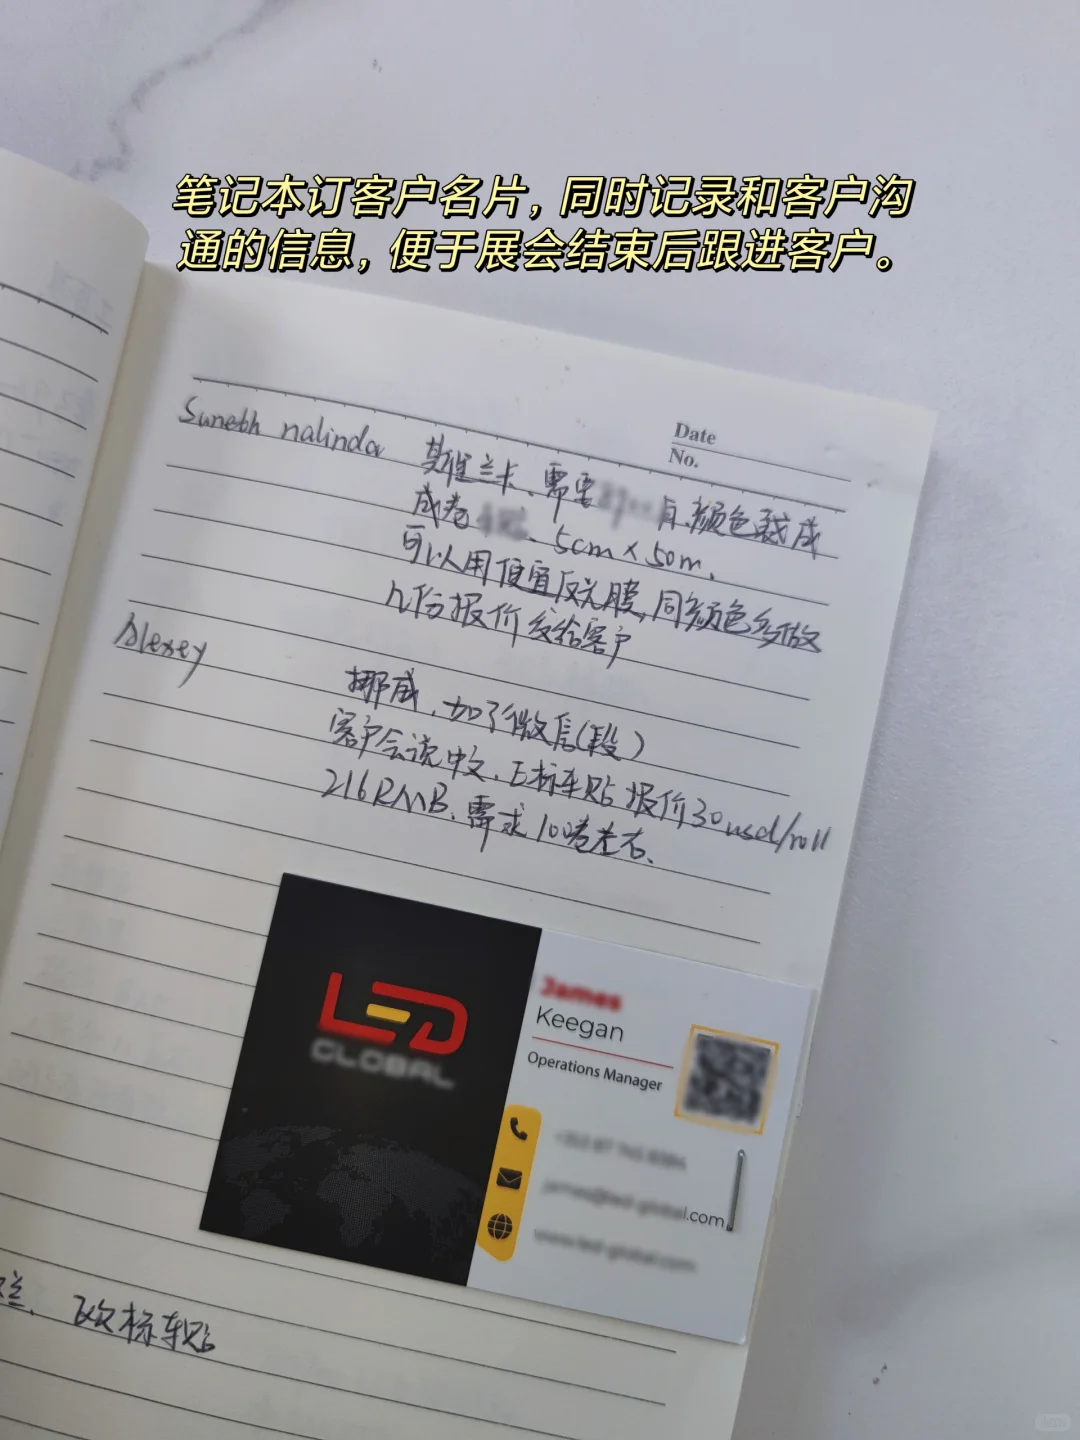 笔记本订客户名片，同时记录和客户沟
通的信息，便于展会结束后跟进客户。
Date
No.
Suneth nalinda 斯里兰卡、需要 颜色裁成
成卷 5cm×50m.
可以用便宜反光膜,同颜色多做
几份报价发给客户
Alexey
挪威.加了微信(段)
客户会说中文.E标车贴 报价30usd/roll
216RMB.需求100卷左右、
LED
GLOBAL
James
Keegan
Operations Manager
.com
兰. 欧标车贴